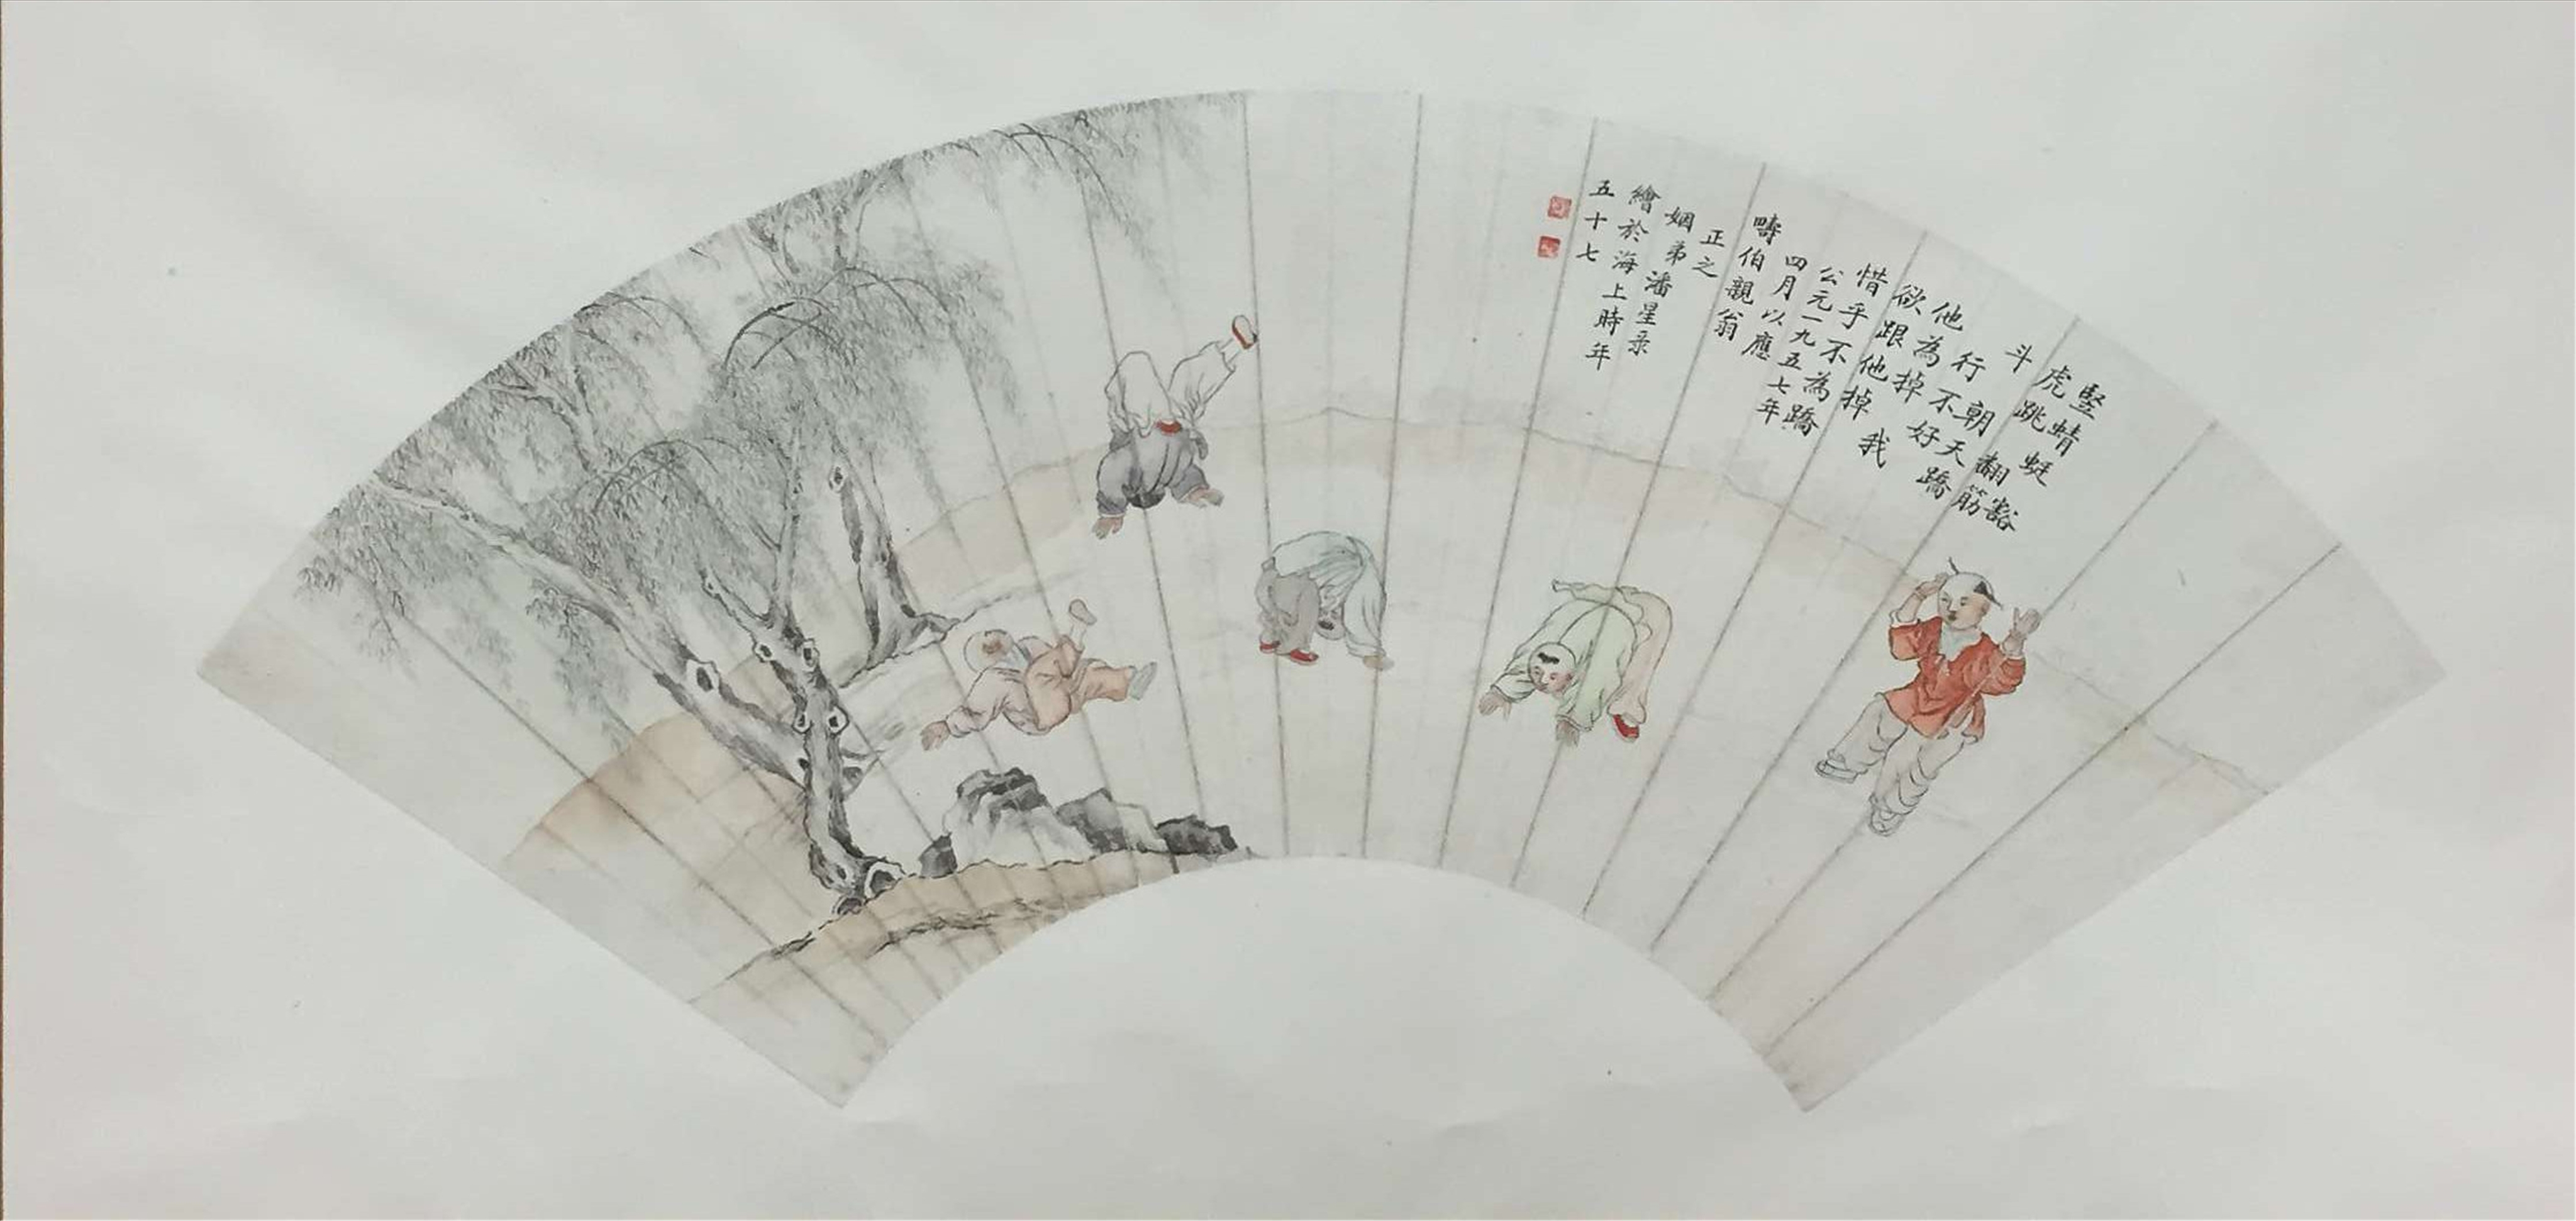 豎蜻蜓豁
虎跳翻筋
斗朝天蹻
行不好
他為掉我
欲跟他掉
惜乎不為蹻
公元一九五七年
四月以應
疇伯親翁
正之
姻弟潘星彔
繪於海上時年
五十七